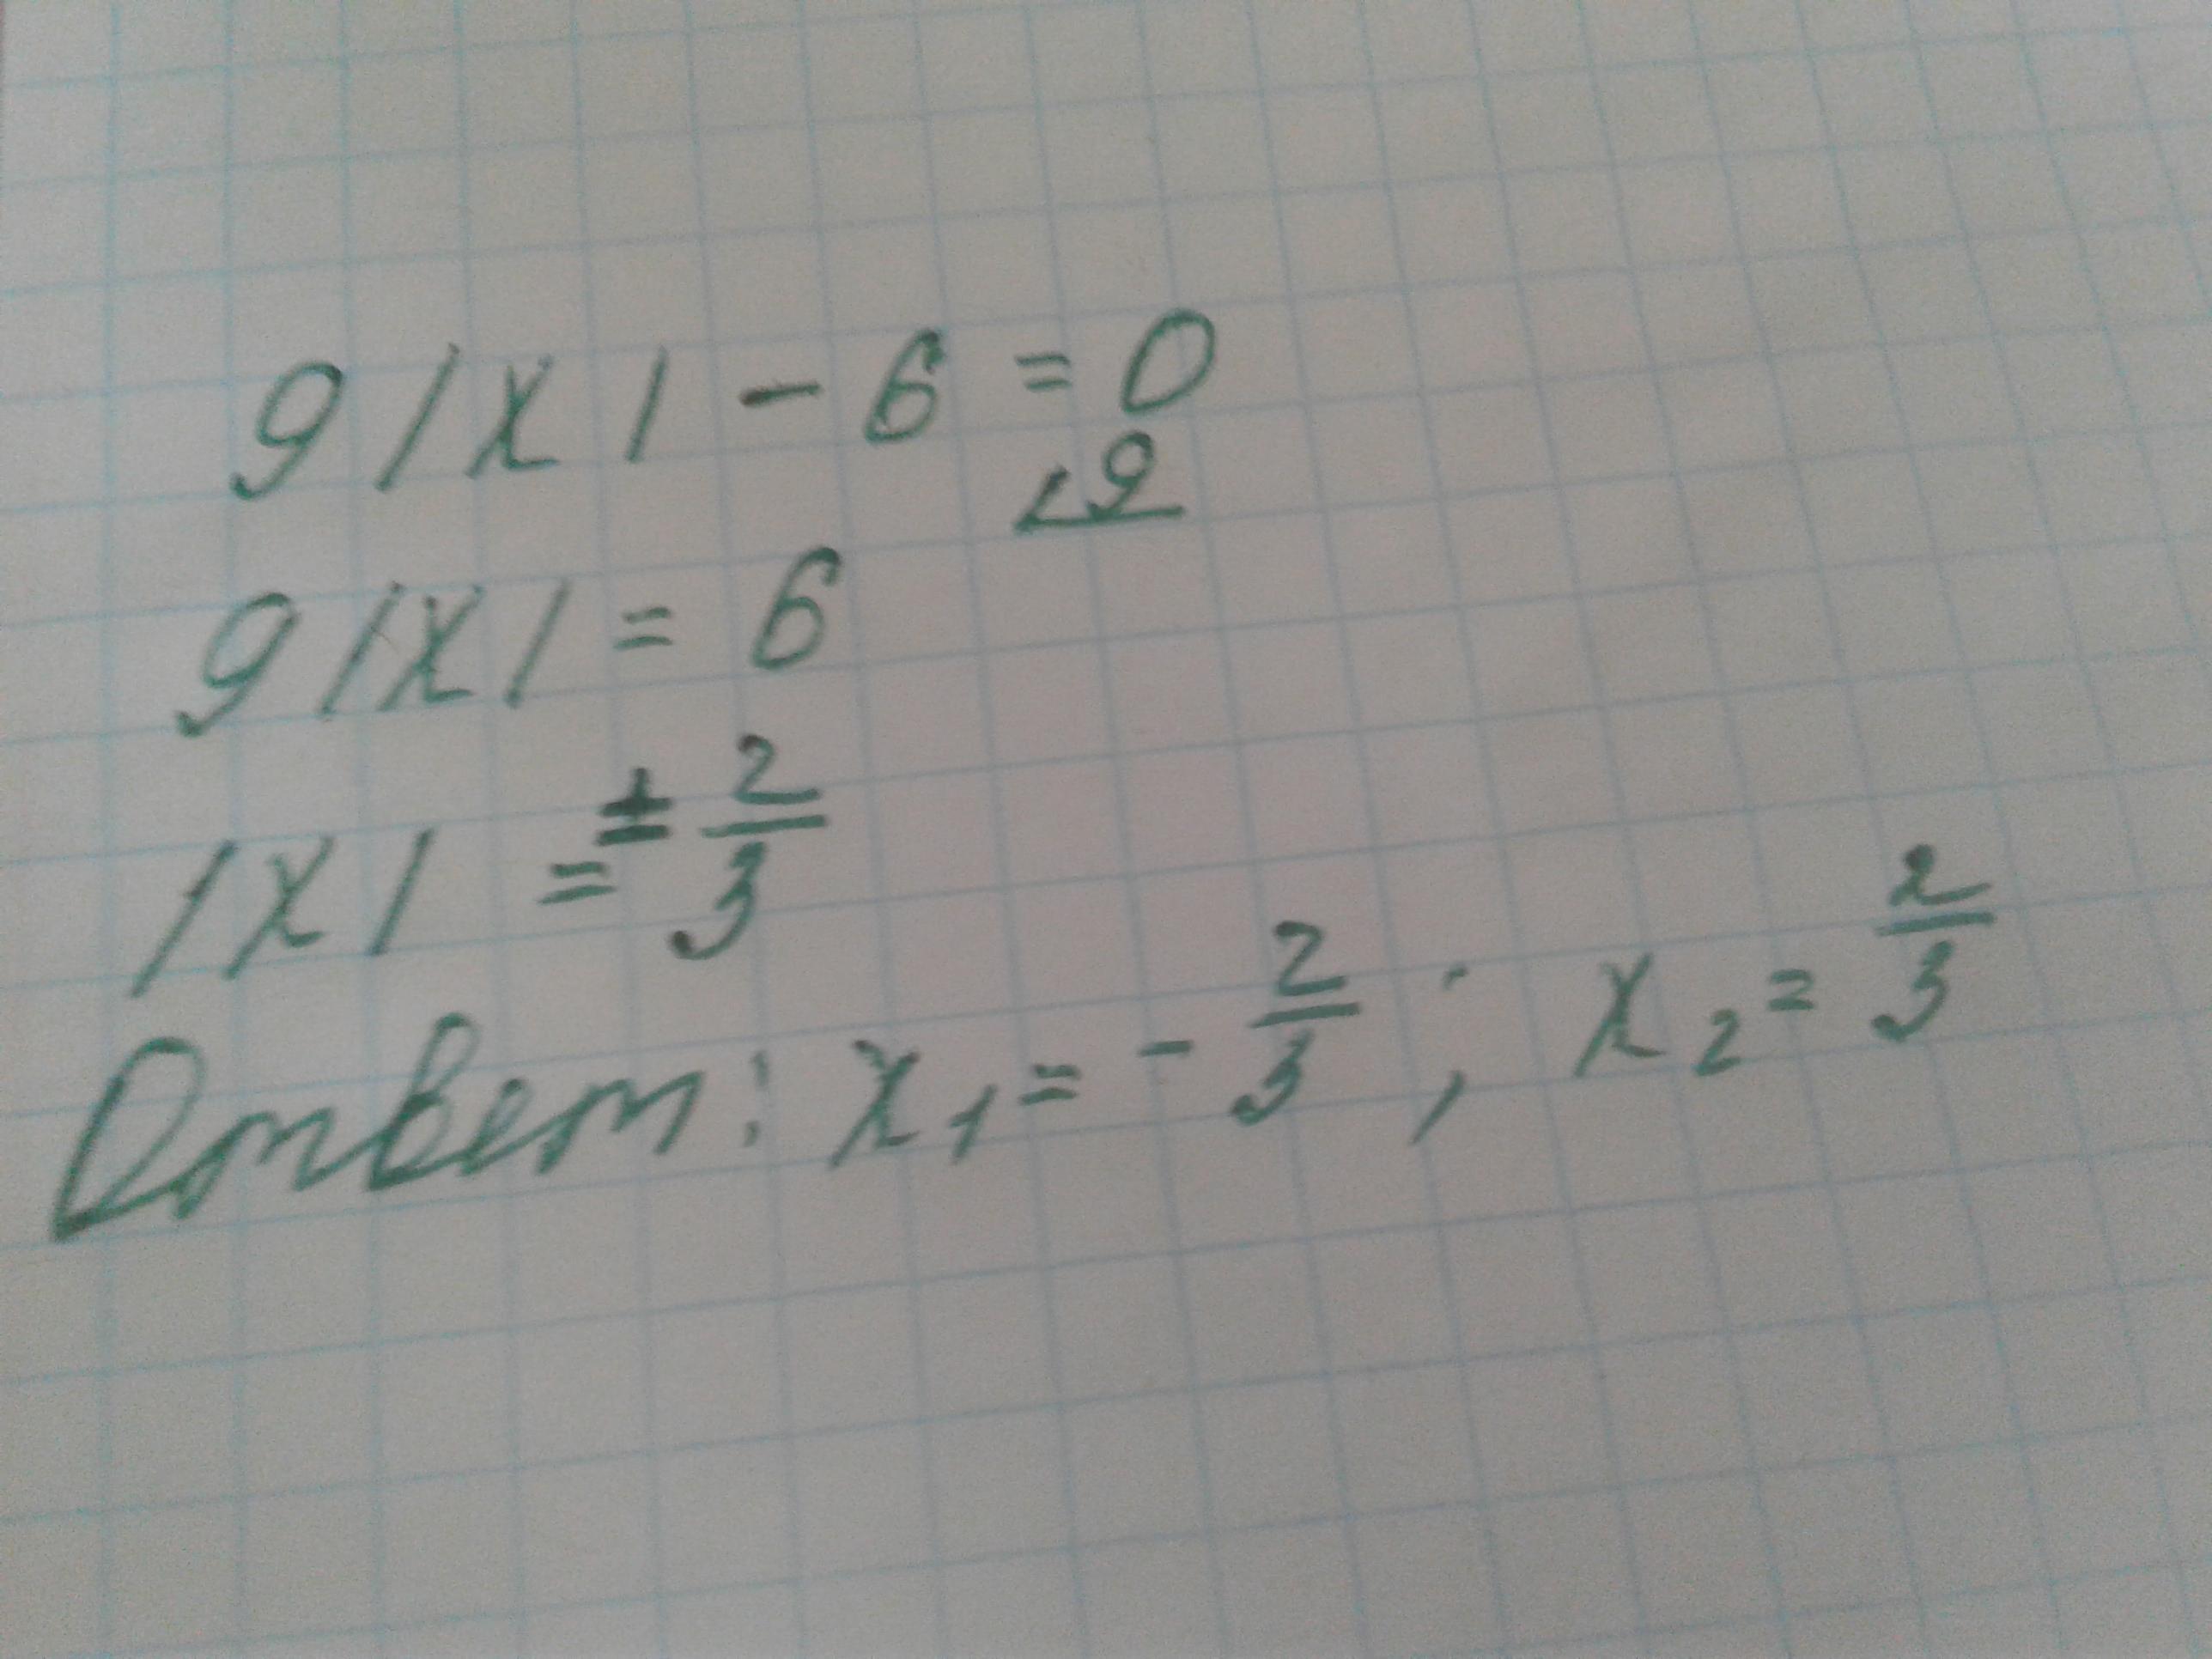 9|x| - 6 = 0
∠9
9|x| = 6
|x| = ± 2/3
Ответ: x₁ = - 2/3 ; x₂ = 2/3